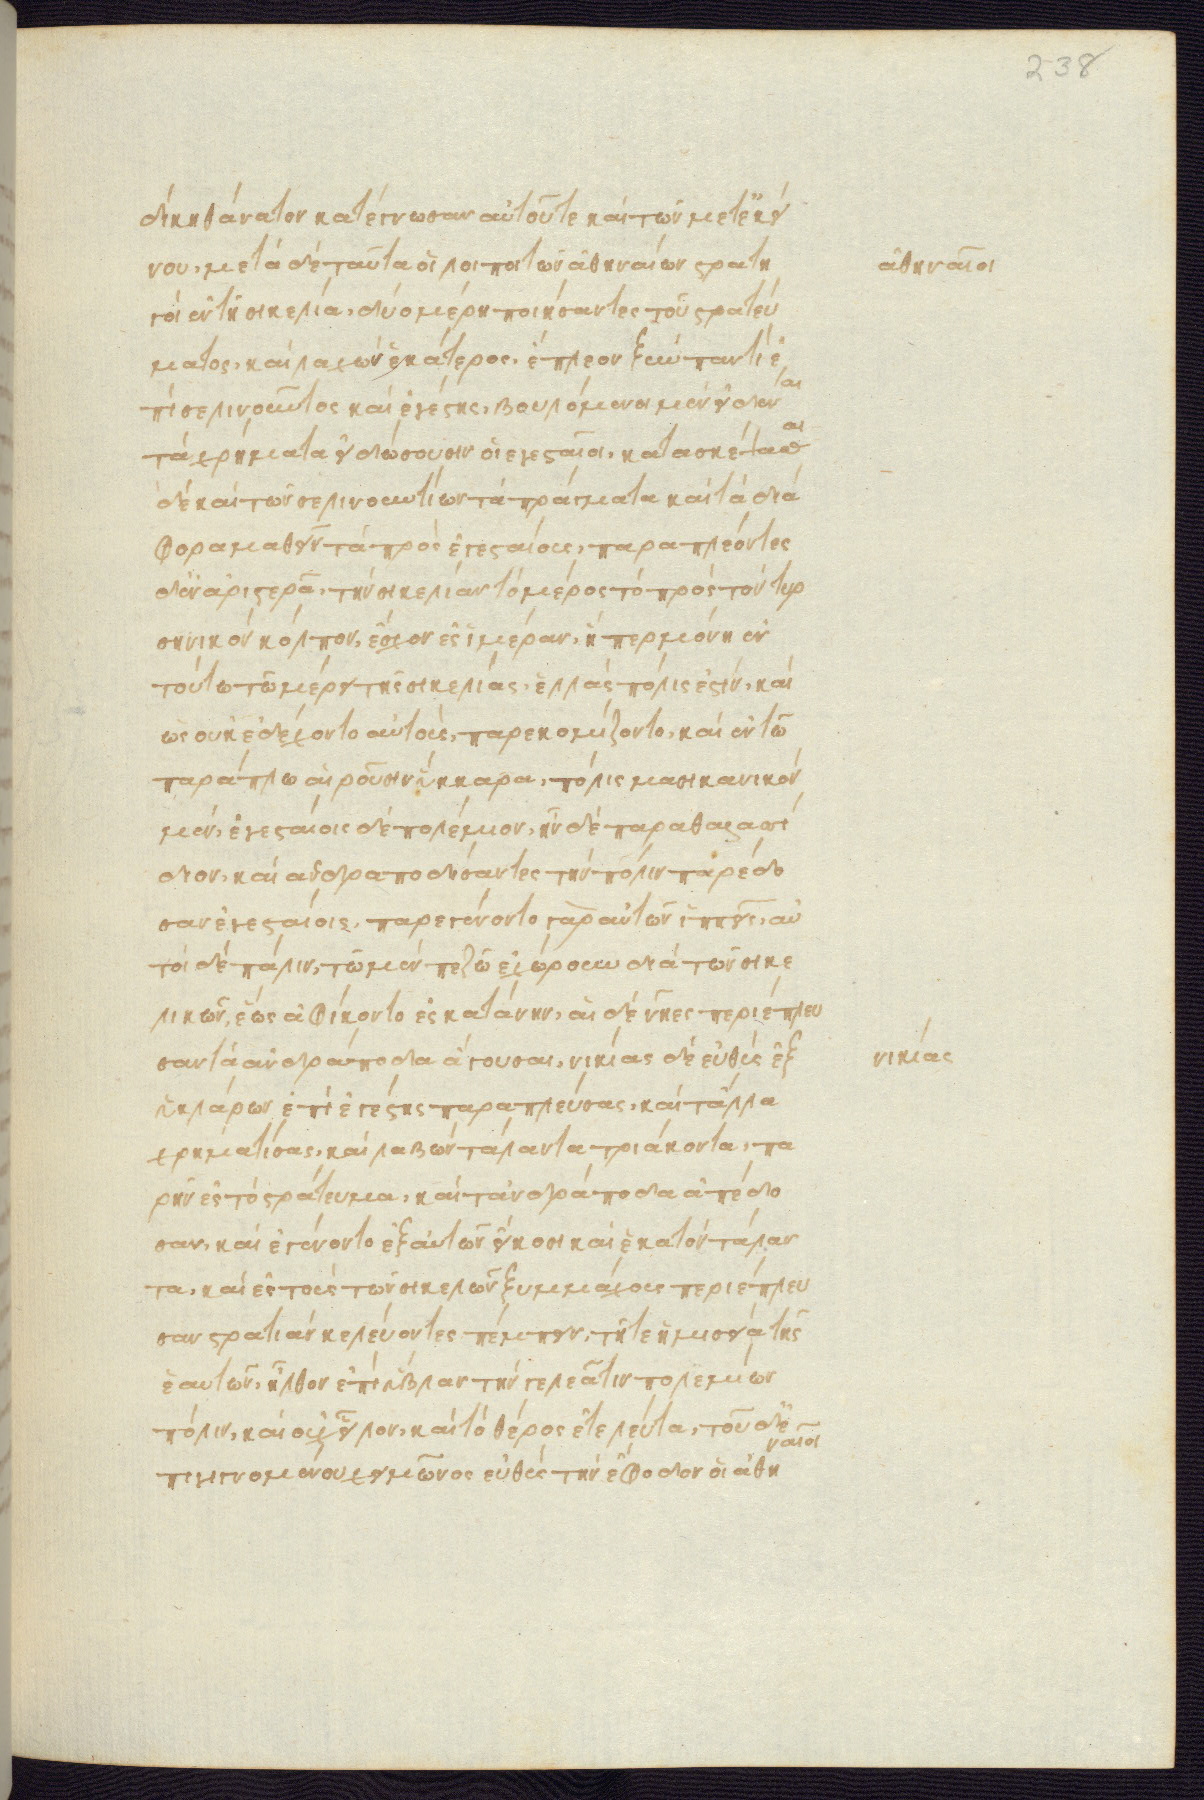 238
δίκη θάνατον κατέγνωσαν αὐτοῦ τε καὶ τῶν μετ' ἐκεί
νου, μετὰ δὲ ταῦτα οἱ λοιποὶ τῶν ἀθηναίων στρατη
ἀθηναῖοι
γοὶ ἐν τῇ σικελία, δύο μέρη ποιήσαντες τοῦ στρατεύ
ματος, καὶ λαχὼν ἑκάτερος, ἔπλεον ξύμπαντι ἐ
πὶ σελινοῦντος καὶ ἐγέστης, βουλόμενοι μὲν εἰδέναι
τὰ χρήματα εἰ δώσουσιν οἱ εγεσταῖοι, κατασκέψασθαι
δὲ καὶ τῶν σελινουντίων τὰ πράγματα καὶ τὰ διά
φορα μαθεῖν τὰ πρὸς ἐγεσταίους, παραπλέοντες
δ' ἐν ἀριστερᾶ, τὴν σικελίαν τὸ μέρος τὸ πρὸς τὸν τυρ
σηνικὸν κόλπον, ἔσχον ἐς ἱμέραν, ἥπερ μόνη ἐν
τούτω τῶ μέρει τῆς σικελίας, ἑλλὰς πόλις ἐστὶν, καὶ
ὡς οὐκ ἐδέχοντο αὐτοὺς, παρεκομίζοντο, καὶ ἐν τῶ
παράπλω αἱροῦσιν ὕκκαρα, πόλισμα σικανικὸν
μὲν, ἐγεσταίοις δὲ πολέμιον, ἦν δὲ παραθαλασσί
διον, καὶ ἀνδραποδίσαντες τὴν πόλιν παρέδο
σαν ἐγεσταίοις, παρεγένοντο γὰρ αὐτῶν ἱππεῖς, αὐ
τοὶ δὲ πάλιν, τῶ μὲν πεζῶ ἐχώρουν διὰ τῶν σικε
λικῶν, ἕως ἀφίκοντο ἐς κατάνην, αἱ δὲ νῆες περιέπλευ
σαν τὰ ἀνδράποδα ἄγουσαι, νικίας δὲ εὐθὺς ἐξ
νικίας
ὑκκάρων ἐπὶ ἐγέστης παραπλεύσας, καὶ τἄλλα
χρηματίσας, καὶ λαβὼν τάλαντα τριάκοντα, πα
ρῆν ἐς τὸ στράτευμα, καὶ τἀνδράποδα ἀπέδο
σαν, καὶ ἐγένοντο ἐξ αὐτῶν εἴκοσι καὶ ἑκατὸν τάλαν
τα, καὶ ἐς τοὺς τῶν σικελῶν ξυμμάχους περιέπλευ
σαν στρατιὰν κελεύοντες πέμπειν, τῆ τε ἡμισείᾳ τῆς
ἑαυτῶν, ἦλθον ἐπὶ ὕβλαν τὴν γελεᾶτιν πολεμίων
πόλιν, καὶ οὐχ εἷλον, καὶ τὸ θέρος ἐτελεύτα, τοῦ δ' ἐ
πιγιγνομένου χειμῶνος εὐθὺς τὴν ἔφοδον οἱ ἀθηναῖοι